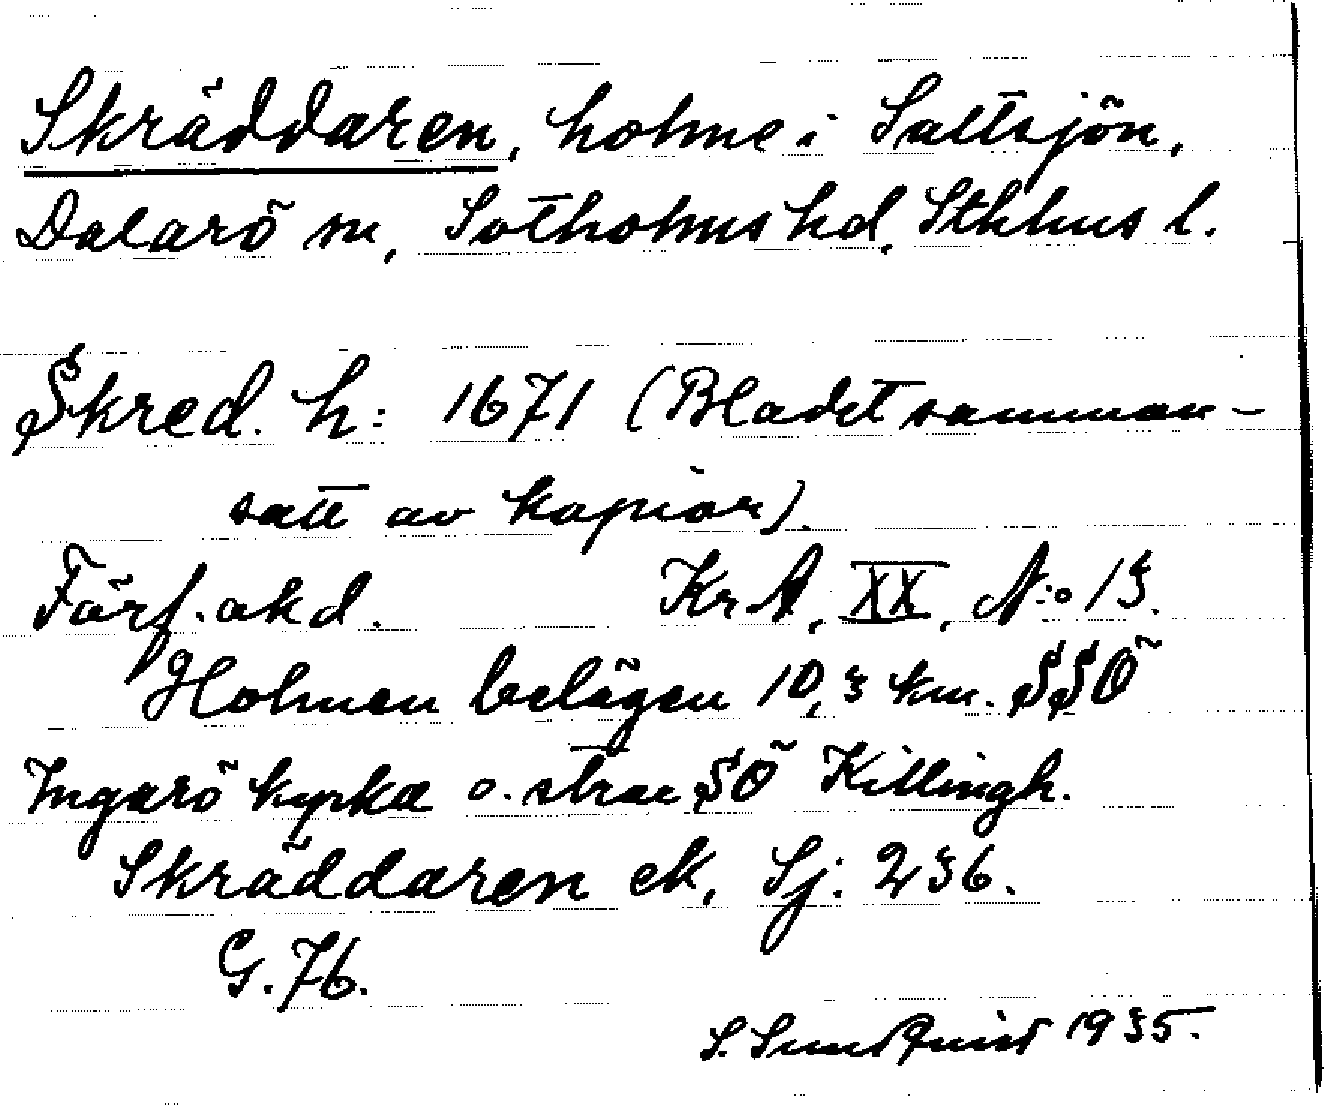 Skräddaren, holme i Saltsjön,
Dalarö sn, Sotholms hd, Sthlms l.
Skred. h: 1671 (Bladet samman-
satt av kopior).
Förf. okd. Kr.A, XX, N:o 13.
Holmen belägen 10,3 km. SSÖ
Ingarö kyrka o. strax SÖ Killingh.
Skräddaren ek, Sj: 236.
G. 76.
S. Sundquist 1935.